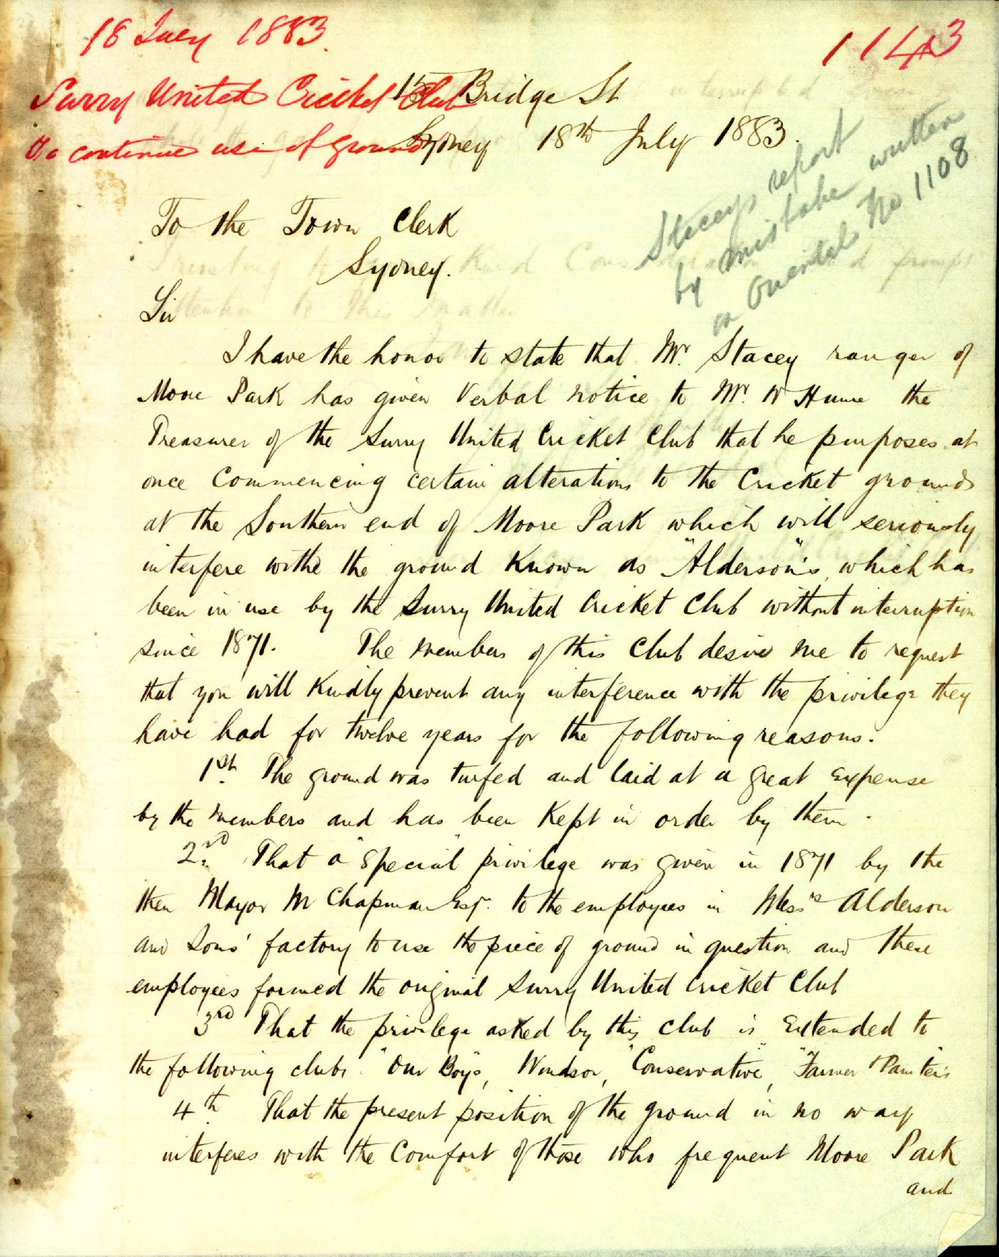 18 July 1883.
1143
Surry United Cricket Club
To continue use of ground
153 Bridge St
Sydney 18th July 1883.
Stacey's report
by mistake written
on Oriental's No 1108
To the Town Clerk
Sydney.
Sir
I have the honor to state that Mr. Stacey ranger of
Moore Park has given Verbal notice to Mr. W Hume the
Treasurer of the Surry United Cricket Club that he purposes at
once Commencing certain alterations to the Cricket grounds
at the Southern end of Moore Park which will seriously
interfere withe the ground known as "Alderson's, which has
been in use by the Surry United Cricket Club without interruption
since 1871. The members of this Club desire me to request
that you will Kindly prevent any interference with the privilege they
have had for twelve years for the following reasons.
1st. The ground was turfed and laid at a great Expense
by the members and has been Kept in order by them.
2nd. That a "Special" privilege was given in 1871 by the
then Mayor M Chapman Esqr. to the employees in Messrs Alderson
and Sons' factory to use the piece of ground in question and these
employees formed the original Surry United Cricket Club
3rd That the privilege asked by this club is Extended to
the following clubs. "Our Boys", Windsor, "Conservative", "Farmer & Painters
4th That the present position of the ground in no way
interferes with the Comfort of those who frequent Moore Park
and